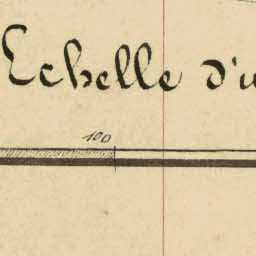 Echelle d'u
100